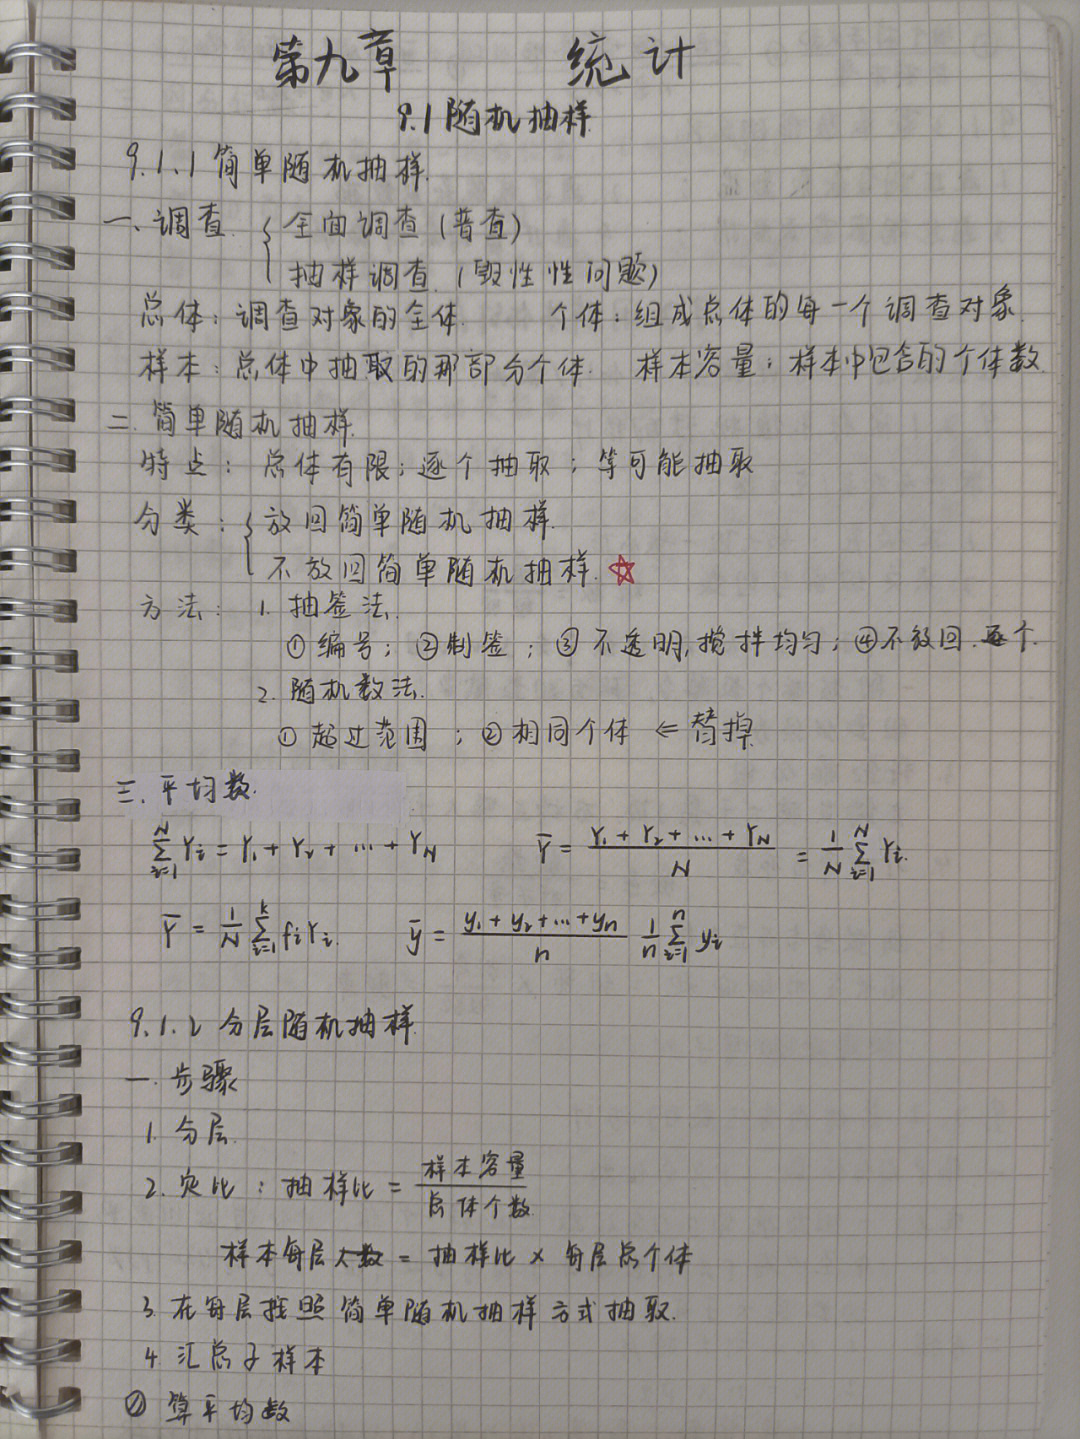 第九章 统计
9.1 随机抽样
9.1.1 简单随机抽样.
一、调查 { 全面调查 (普查)
抽样调查. (毁性性问题)
总体: 调查对象的全体. 个体: 组成总体的每一个调查对象.
样本: 总体中抽取的那部分个体. 样本容量: 样本中包含的个体数.
二. 简单随机抽样.
特点: 总体有限; 逐个抽取; 等可能抽取
分类: { 放回简单随机抽样.
不放回简单随机抽样. ☆
方法: 1. 抽签法.
① 编号; ②制签; ③ 不透明, 搅拌均匀; ④不放回.逐个.
2. 随机数法.
① 超过范围; ②相同个体 ⇐ 替掉
三. 平均数.
\sum_{i=1}^{N} Y_i = Y_1 + Y_2 + … + Y_N \bar{Y} = \frac{Y_1 + Y_2 + … + Y_N}{N} = \frac{1}{N} \sum_{i=1}^{N} Y_i.
\bar{Y} = \frac{1}{N} \sum_{i=1}^{k} f_i Y_i. \bar{y} = \frac{y_1 + y_2 + … + y_n}{n} \frac{1}{n} \sum_{i=1}^{n} y_i
9.1.2 分层随机抽样.
一. 步骤
1. 分层.
2. 定比: 抽样比 = \frac{样本容量}{总体个数}
样本每层人数 = 抽样比 × 每层总个体
3. 在每层按照简单随机抽样方式抽取.
4. 汇总子样本
② 算平均数